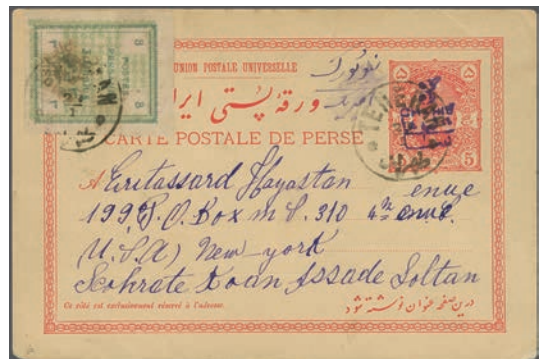 UNION POSTALE UNIVERSELLE
نویورک
ورقه پستی ایران
CARTE POSTALE DE PERSE
TEHERAN
5
Eritassard Hayastan enue
199 P.O. Box 310 4th enue
U.S.A) New-york
Sohrate Assade Soltan
Ce côté est exclusivement réservé à l'adresse.
درین صفحه عنوان نوشته شود